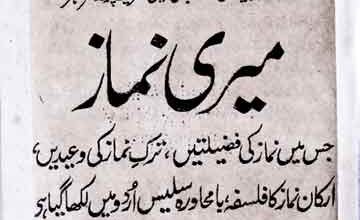 میری نماز
جس میں نماز کی فضیلتیں، ترکِ نماز کی وعیدیں،
ارکانِ نماز کا فلسفہ بامحاورہ سلیس اُردو میں لکھا گیا ہو